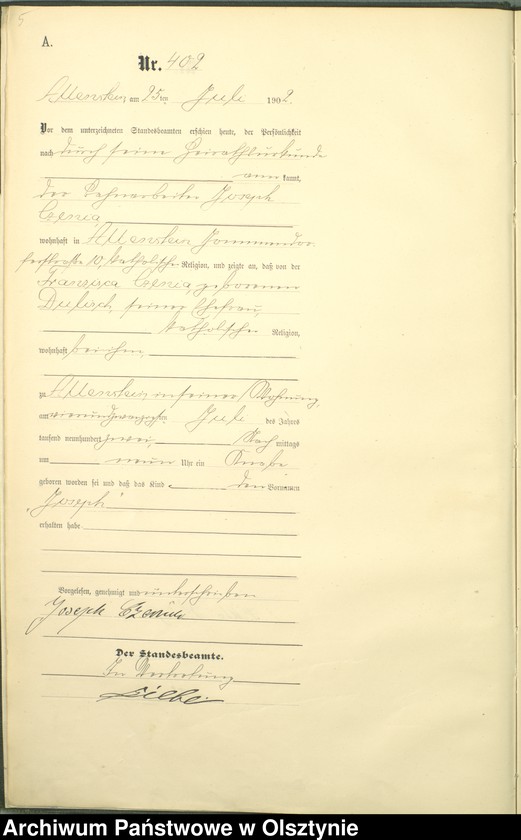 5
A.
Nr. 402
Allenstein am 25ten Juli 1902.
Vor dem unterzeichneten Standesbeamten erschien heute, der Persönlichkeit
nach durch seine Heirathsurkunde
anerkannt,
der Bahnarbeiter Joseph
wohnhaft in Allenstein
straße 10, katholischer Religion, und zeigte an, daß von der
Franzisca geborenen
seiner Ehefrau,
katholischer Religion,
wohnhaft bei ihm,
zu Allenstein in seiner Wohnung,
am vierundzwanzigsten Juli des Jahres
tausend neunhundert zwei, Nach mittags
um neun Uhr ein Knabe
geboren worden sei und daß das Kind den Vornamen
„Joseph“
erhalten habe
Vorgelesen, genehmigt und unterschrieben
Joseph
Der Standesbeamte.
In Vertretung
Archiwum Państwowe w Olsztynie